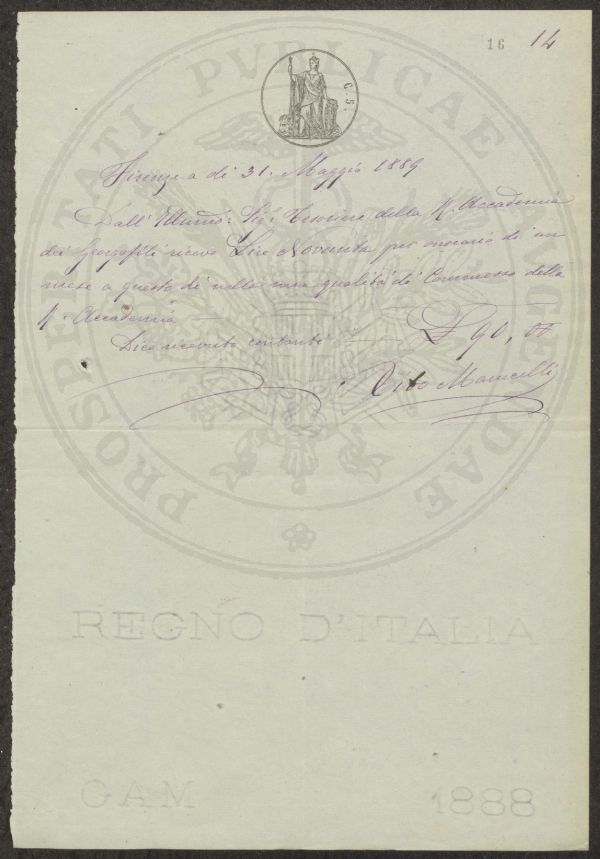 16 14
C. 5.
Firenze a dì 31. Maggio 1889
Dall' Sig. della R. Accademia
dei Georgofili ricevo Lire Novanta per onorario di un
mese a questo dì nella mia qualità di Commesso della
R. Accademia
Dico ricevute contanti £ 90,00
Tito
PROSPERITATI PVBLICAE AVGENDAE
REGNO D'ITALIA
GAM 1888